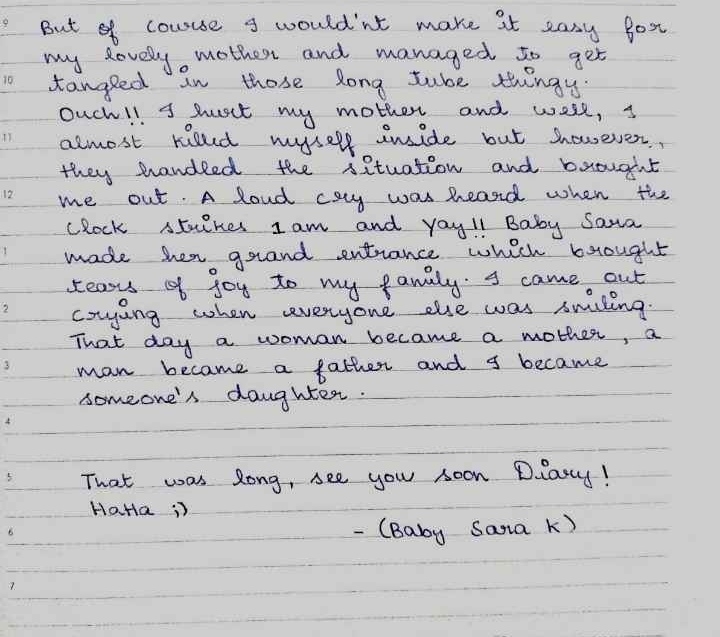 9
But of course I would'nt make it easy for
my lovely mother and managed to get
10 tangled in those long tube thingy.
Ouch!! I hurt my mother and well, I
11 almost killed myself inside but however,
they handled the situation and brought
12 me out. A loud cry was heard when the
clock strikes 1 am and Yay!! Baby Sara
1 made her grand entrance which brought
tears of joy to my family. I came out
2 crying when everyone else was smiling.
That day a woman became a mother, a
3 man became a father and I became
someone's daughter.
4
5 That was long, see you soon Diary!
HaHa ;)
6 - (Baby Sara K)
7